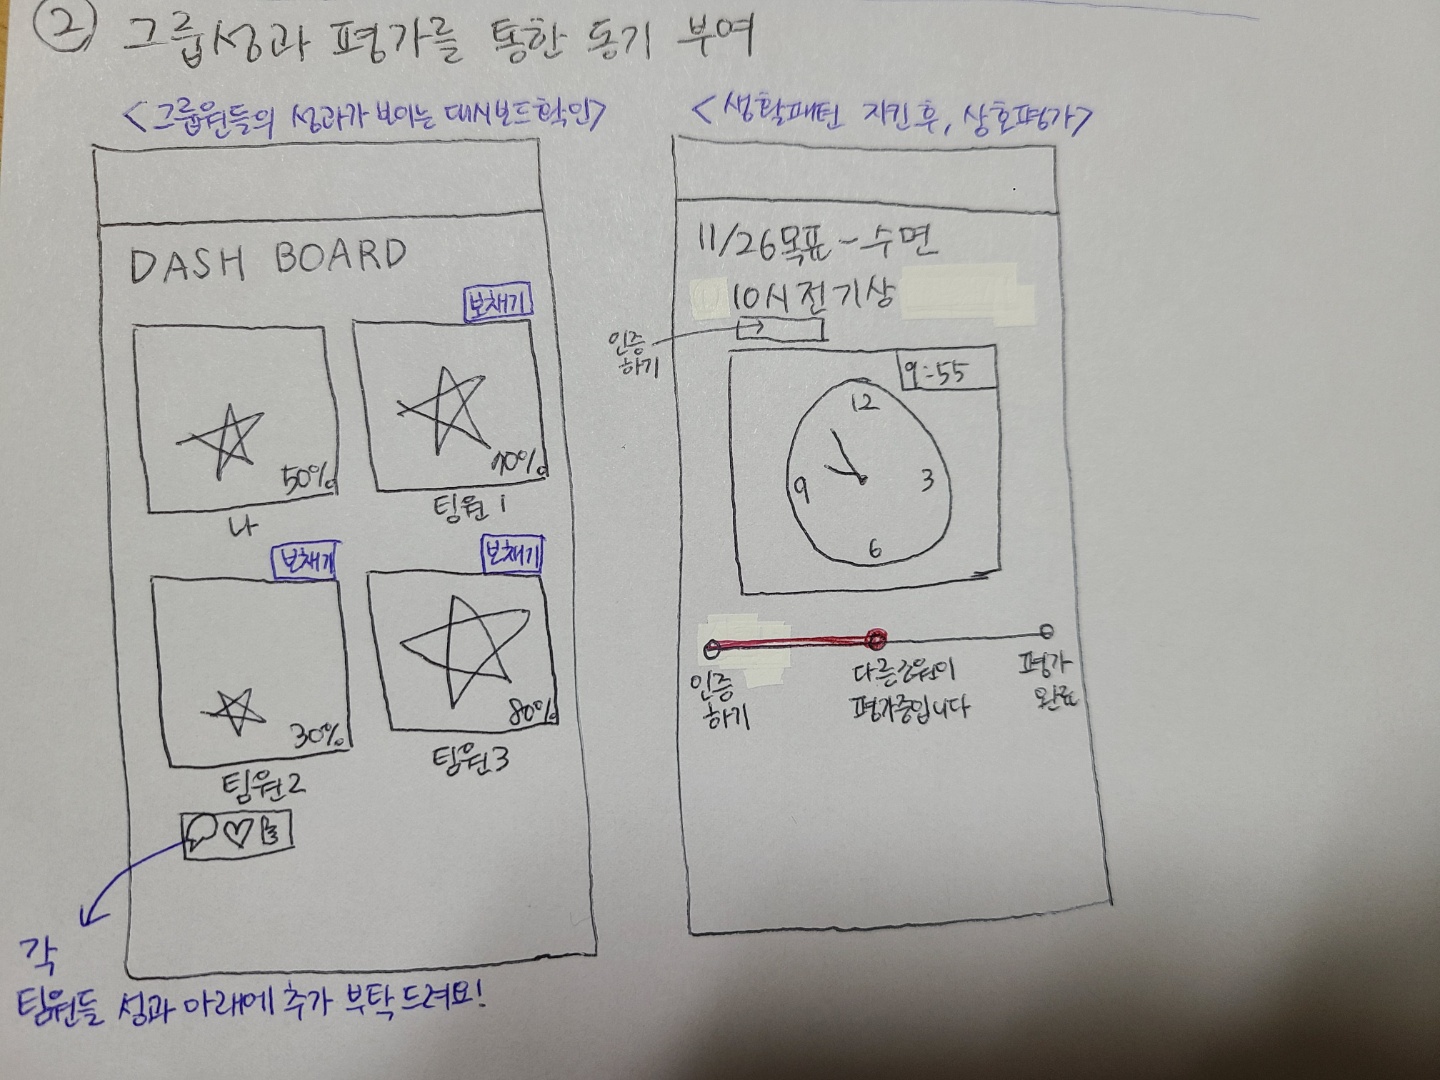 ② 그룹성과 평가를 통한 동기 부여
<그룹원들의 성과가 보이는 대시보드 확인>
DASH BOARD
보채기
50%
나
70%
팀원 1
보채기
보채기
30%
팀원2
80%
팀원3
각
팀원들 성과 아래에 추가 부탁드려요!
<생활패턴 지킨 후, 상호평가>
11/26목표-수면
10시 전 기상
인증
하기
9:55
12
3
6
9
인증
하기
다른조원이
평가중입니다
평가
완료